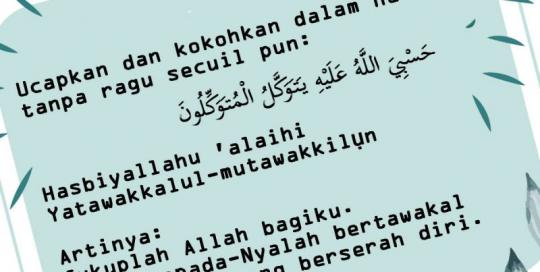 Ucapkan dan kokohkan dalam
tanpa ragu secuil pun:
حَسْبِيَ اللَّهُ عَلَيْهِ يَتَوَكَّلُ الْمُتَوَكِّلُونَ
Hasbiyallahu 'alaihi
Yatawakkalul-mutawakkilụn
Artinya:
Cukuplah Allah bagiku.
bertawakal
berserah diri.